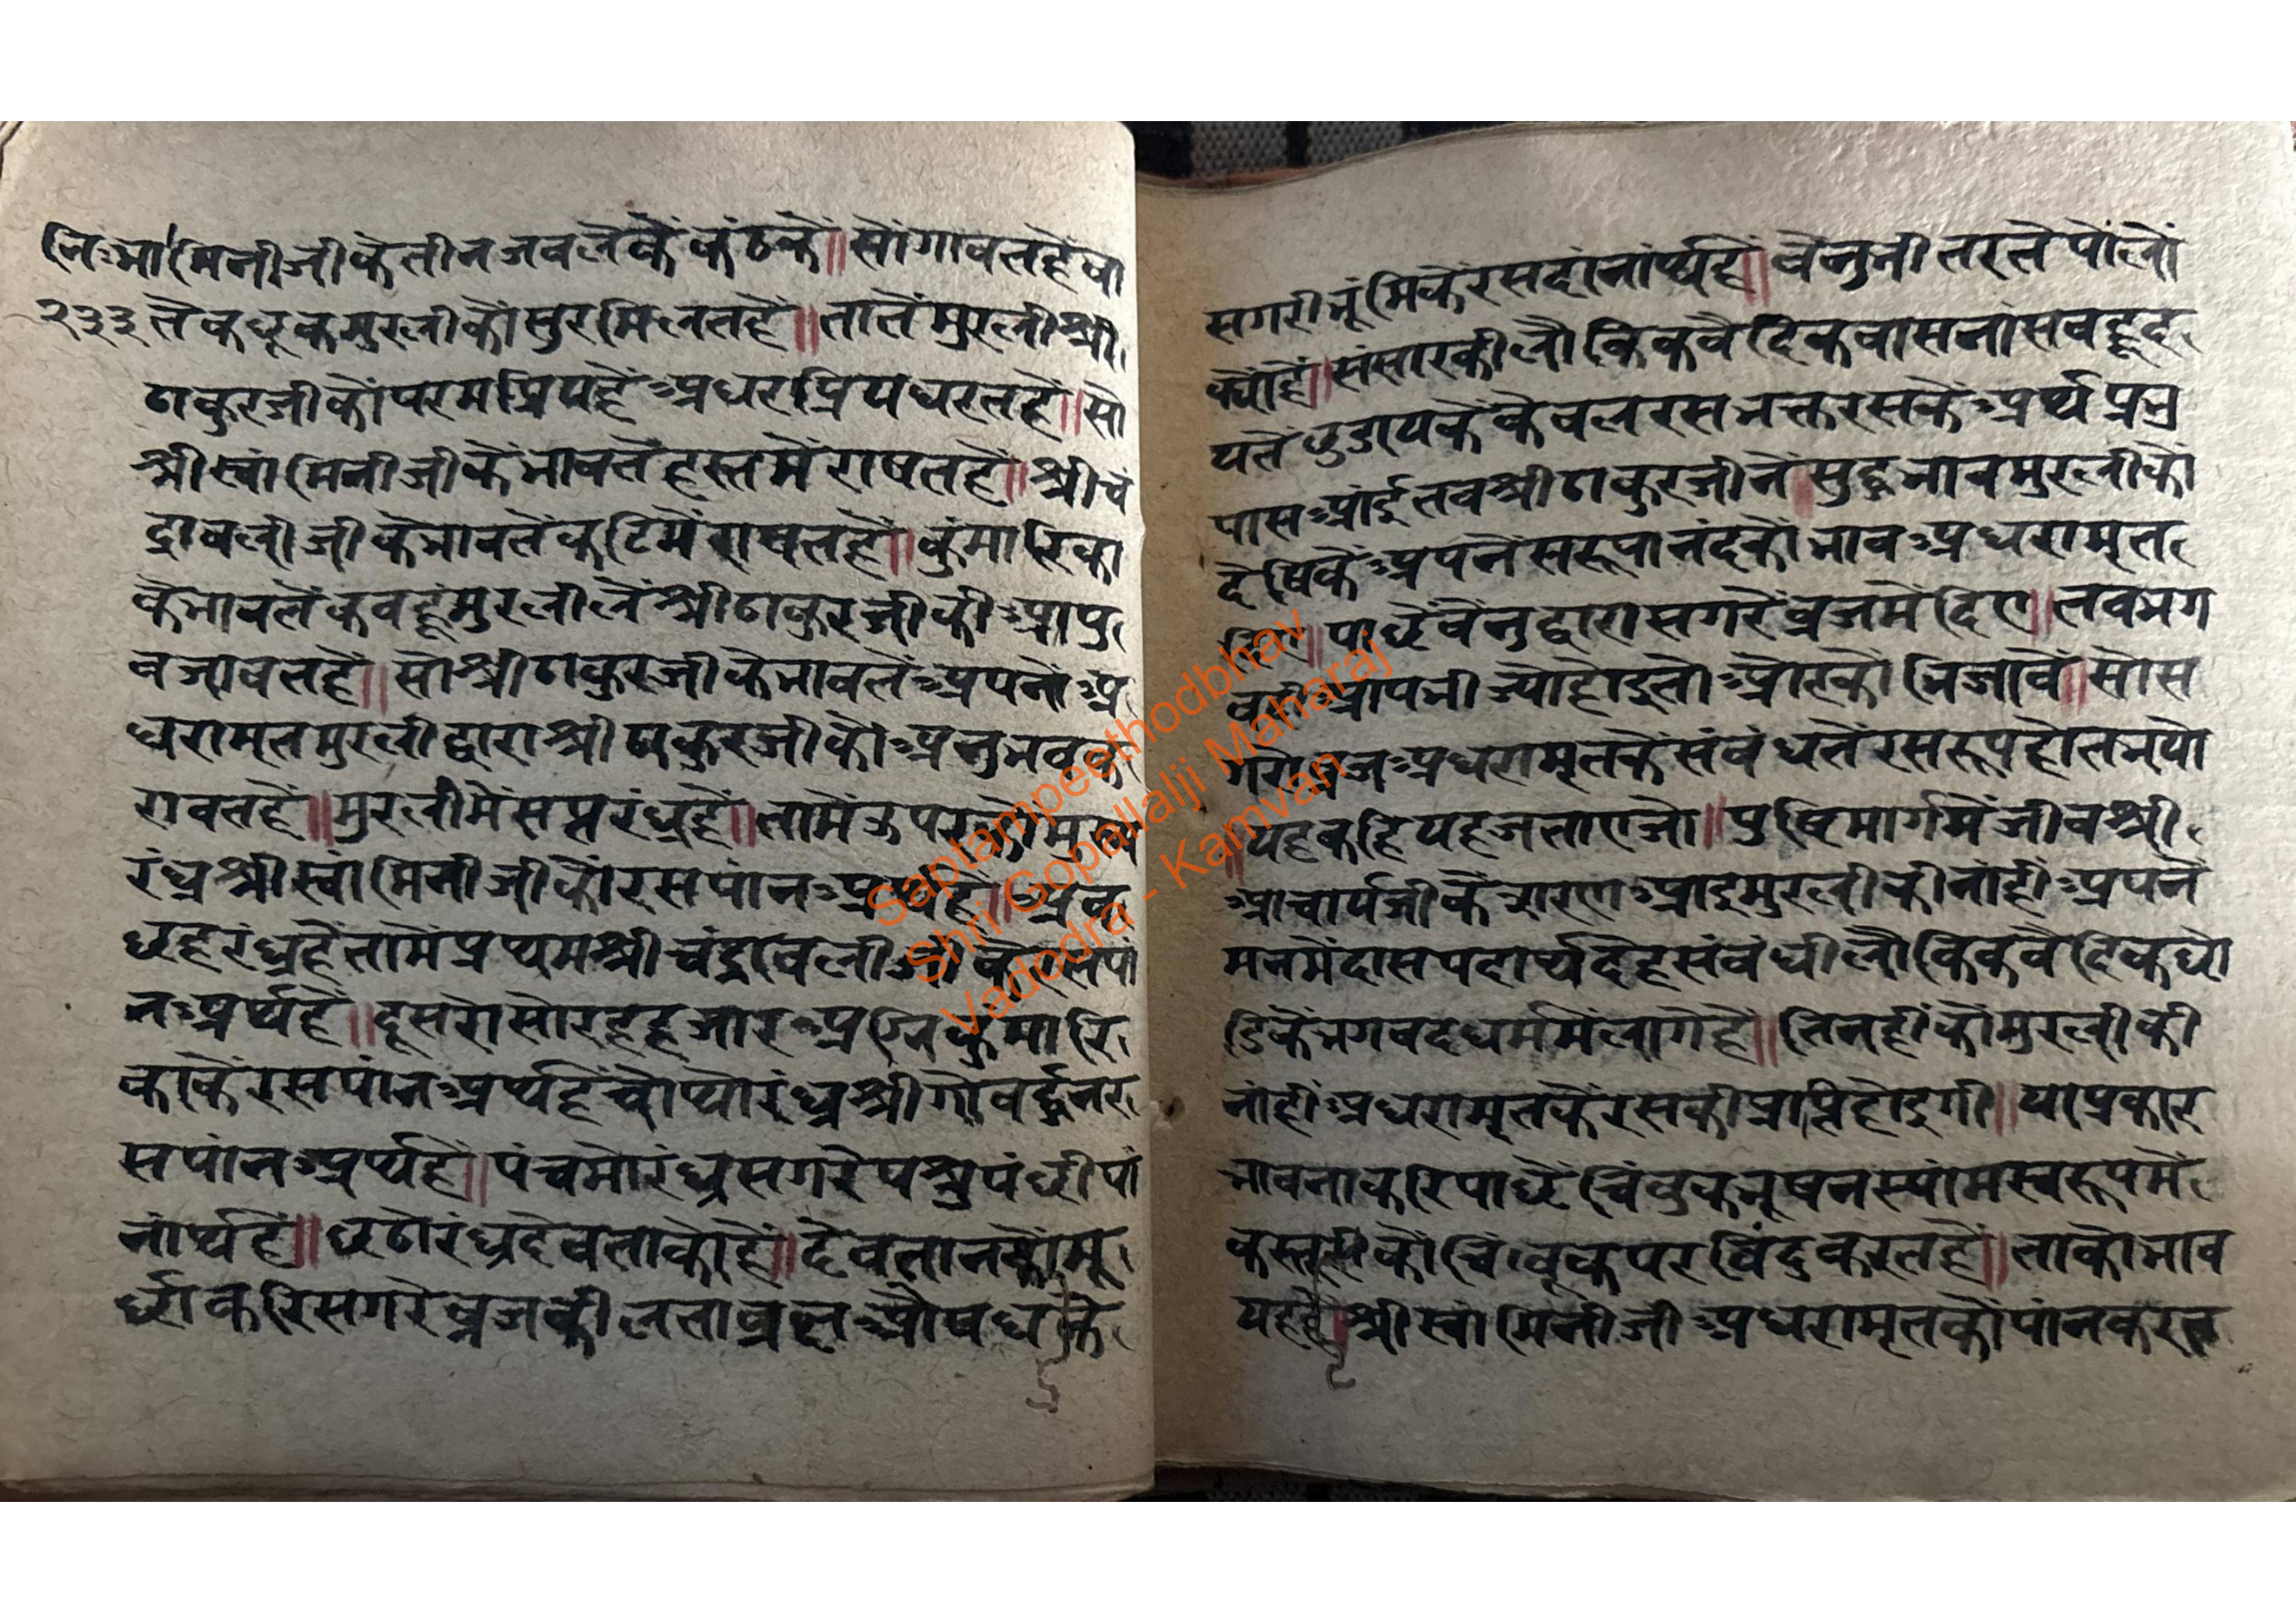 नि॰भा॰ मिनीजीकेतीनजवलेकैं कंठकैं॥सोगावतहेवा
२३३ तैकछूकमुरलीकोंसुरमिलतहैं॥तातेंमुरलीश्री
ठाकुरजीकोंपरमप्रियहैंअधरप्रियधरतहैं॥सो
श्रीस्वांमिनीजीकेभावतेंहस्तमेंराषतहैं॥श्रीचं
द्रावलीजीकेभावतेंकटिमेंराषतहैं॥कुंमारिका
केभावतेंकबहूंमुरलीतेंश्रीठाकुरजीकीआपु
बजावतहैं॥सोश्रीठाकुरजीकेभावतेंअपनोंअ
धरामतमुरलीद्वाराश्रीठाकुरजीकोंअनुभवक
रावतहैं॥मुरलीमेंसप्तरंध्रहैं॥तामेंऊपरकोमुख्य
रंध्रश्रीस्वांमिनीजीकोंरसपांनअर्थहैं॥
छहरंध्रहैंतामेंप्रथमश्रीचंद्रावलीजीकेरसपां
नअर्थहैं॥दूसरोसोरहहजारअग्निकुमारि
काकेंरसपांनअर्थहेंचोथोरंध्रश्रीगोवर्द्धनर
सपांनअर्थहैं॥पंचमोरंध्रसगरेपश्रुपंछीपां
नार्थहैं॥छठोरंध्रदेवताकोहैं॥देवतानकोंमू
र्छाकरिसगरेव्रजकीलताव्रछऔषधीके
सगरीभूंमिकेंरसदांनांर्थहैं॥वेनुभीतरतेपोलों
क्योंहैं॥संसारकीलौकिकवैदिकवासनांसबहृद
यतेंछुडायकेंकेवलरसभक्तरसकेंअर्थप्रभु
पासआंईतबश्रीठाकुरजीनें॥सुद्धभावमुरलीकों
देषिकेंअपनेंसरूपानंदकोंभावअधरामृत
दिए॥पाछेंवेनुद्वारासगरेंव्रजमेंदिए॥तबभग
वदीआपभीज्योहोइतोऔरकोंभिजावें॥सोस
गरोव्रजअधरामृतकेसंबंधतेंरसरूपहोतभयो
॥यहकहियहजताएजो॥पुष्टिमार्गमेंजीवश्री
आचार्यजीकेंसरणआइमुरलीकीनांहींअपनें
मनमेंदासपदार्थदेहसंबंधीलौकिकवैदिकछो
डिकेंभगवदधर्ममेंलागेहैं॥तिनहींकोंमुरलीकी
नांहींअधरामृतकेंरसकीप्राप्तिहोइगी॥याप्रकार
भावनाकरिपाछेंचिंबुकभूषनस्यांमस्वरूपमें
कस्तूरीकोंचिंबूकपरबिंदुकरतहैं॥ताकोभाव
यहहै॥श्रीस्वांमिनीजीअधरामृतकोंपांनकरत
Saptampeethodbhav
Shri Gopallalji Maharaj
Vadodra - Kamvan